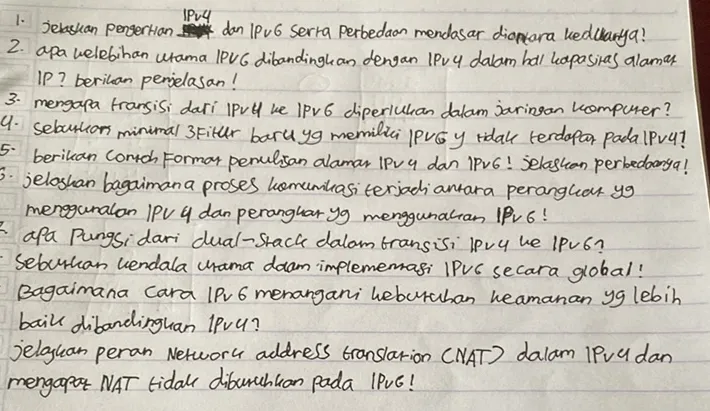 1. Jelaskan pengertian IPv4 dan IPv6 serta perbedaan mendasar diantara keduanya!
2. apa kelebihan utama IPV6 dibandingkan dengan IPv4 dalam hal kapasitas alamat
IP? berikan penjelasan!
3. mengapa transisi dari IPv4 ke IPv6 diperlukan dalam jaringan komputer?
4. Sebutkan minimal 3 Fitur baru yg memiliki IPV6 y tidak terdapat pada IPv4?
5. berikan Contoh Format penulisan alamat IPv4 dan IPV6! jelaskan perbedaanya!
6. jelaskan bagaimana proses komunikasi terjadi antara perangkat yg
menggunakan IPV4 dan perangkat yg menggunakan IPv6!
7. apa Pungsi dari dual-Stack dalam transisi IPv4 ke IPv6?
Sebutkan kendala utama dalam implementasi IPV6 secara global!
Bagaimana cara IPv6 menangani kebutuhan keamanan yg lebih
baik dibandingkan IPv4?
jelaskan peran Network address translation (NAT) dalam IPv4 dan
mengapat NAT tidak dibutuhkan pada IPv6!